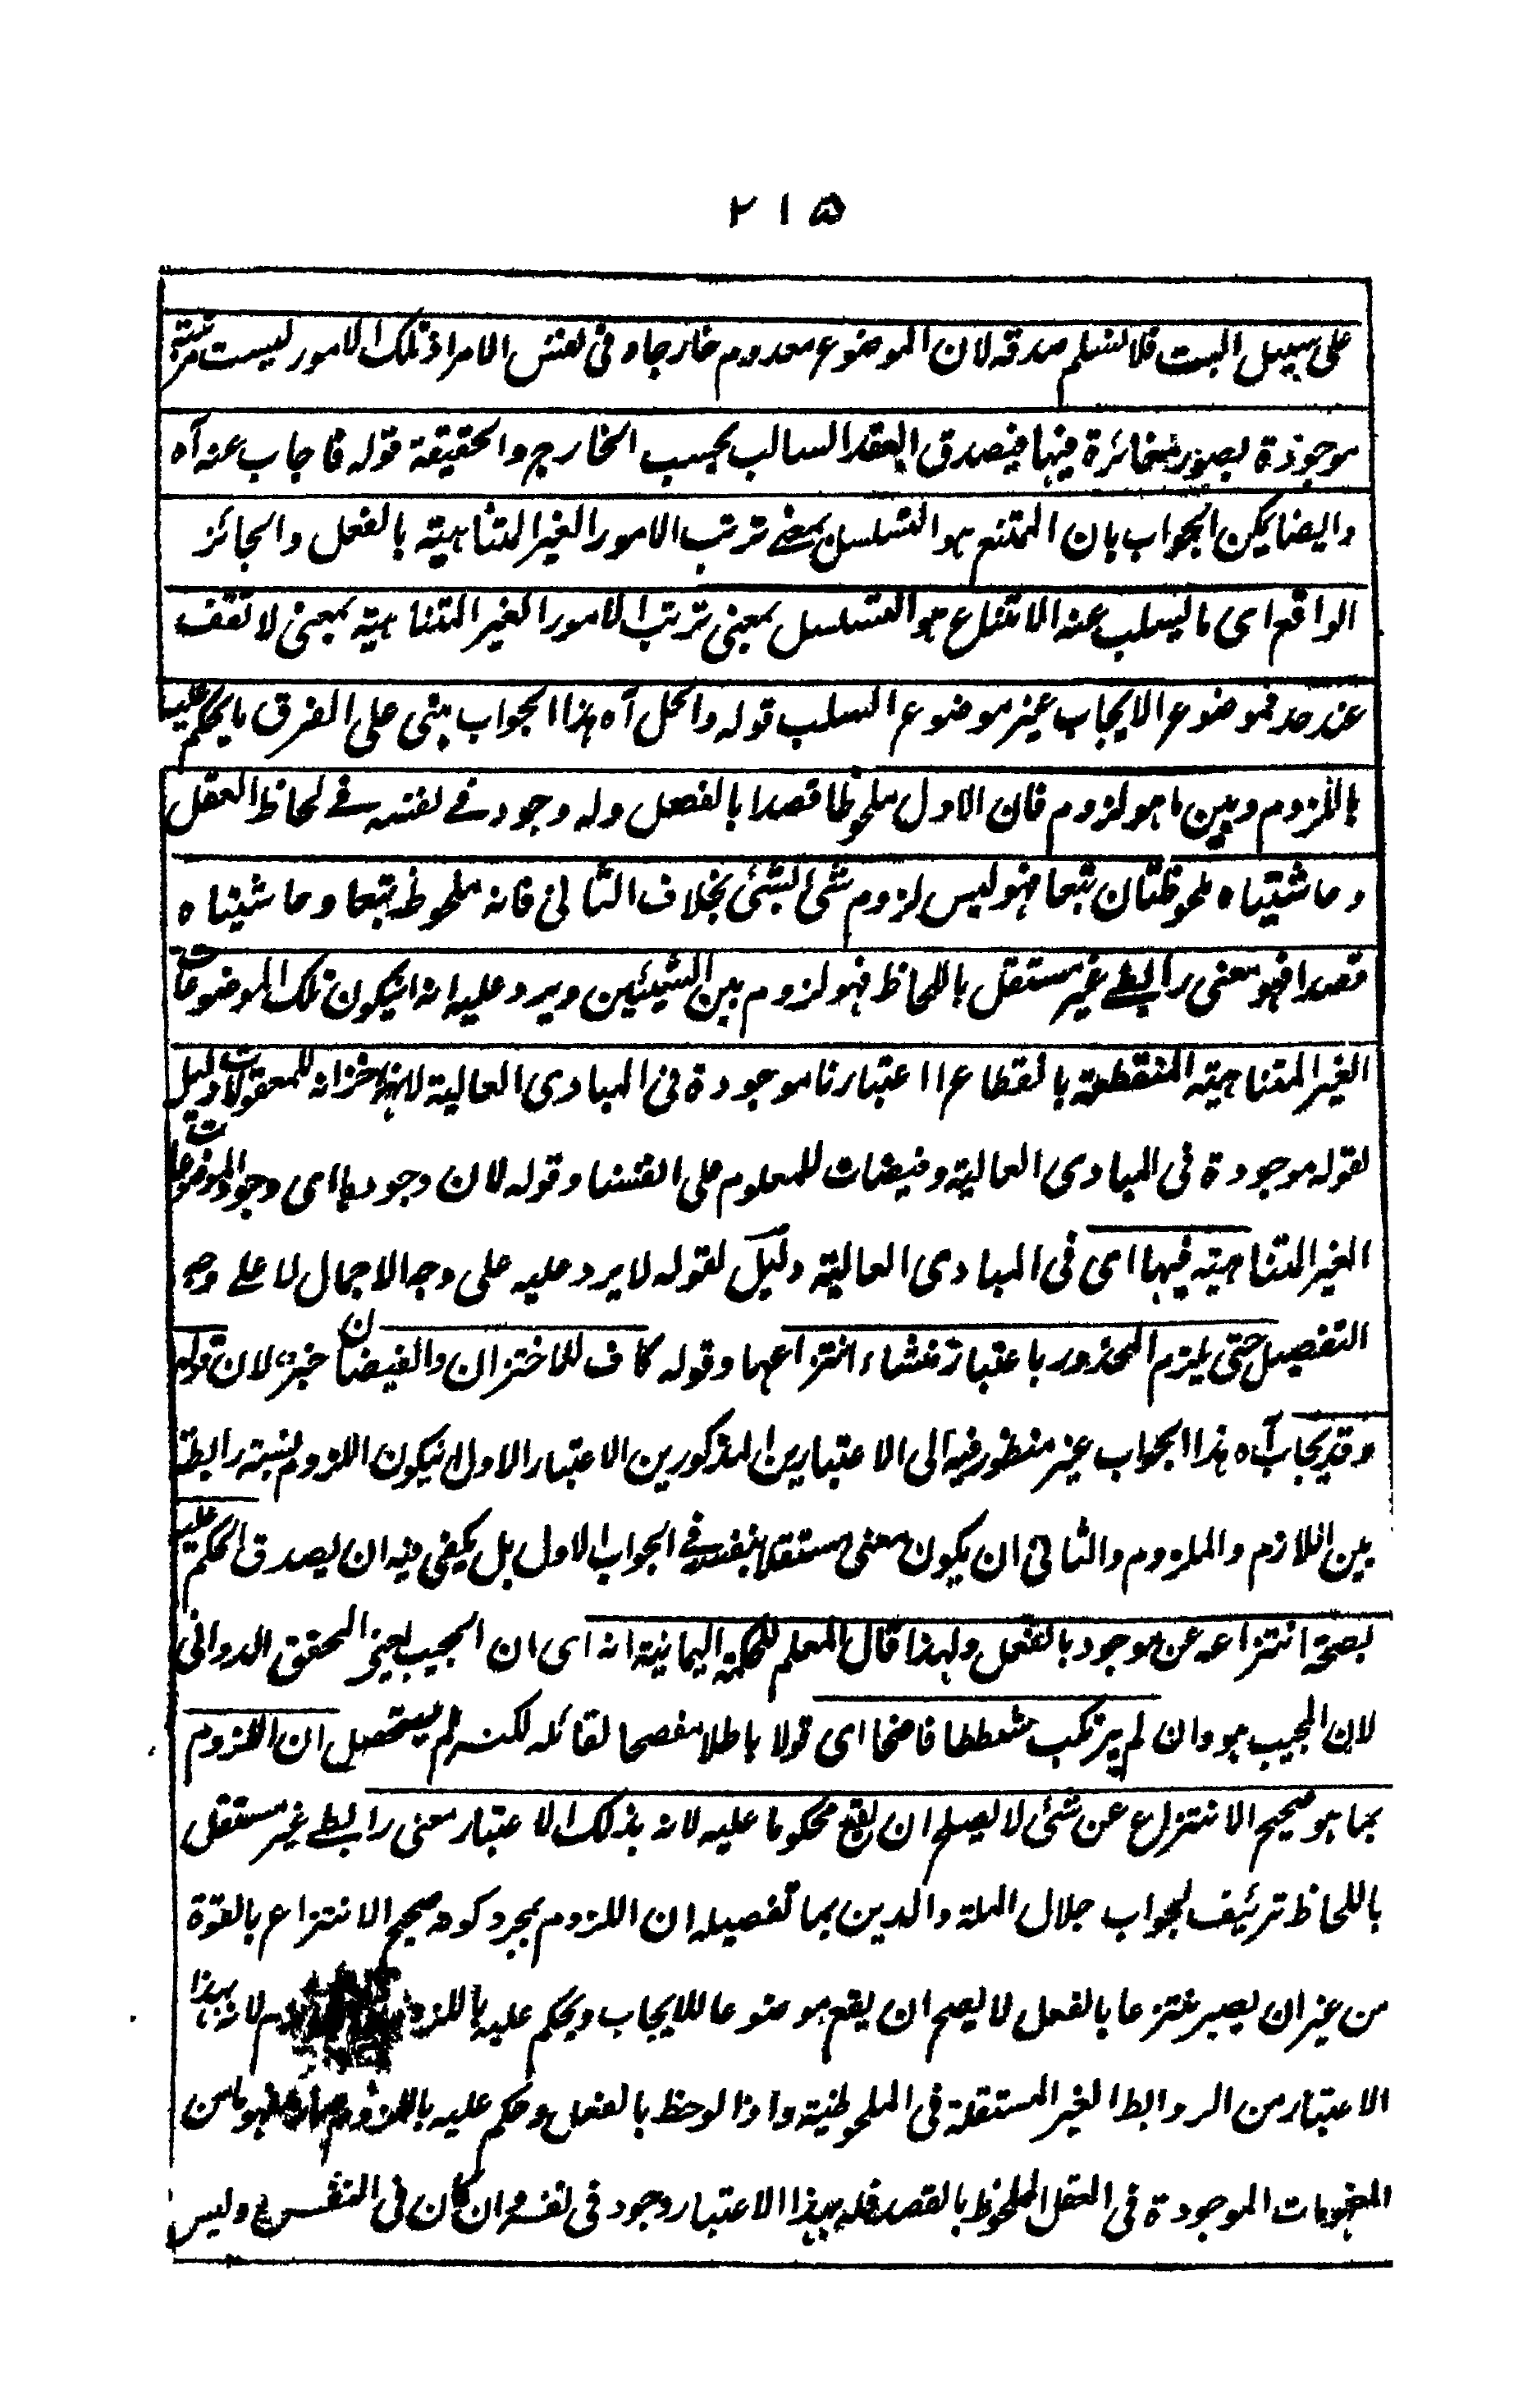 ٢١٥
على سبيل البت فلا نسلم صدقه لان الموضوع معدوم خارجا و فى نفس الامر اذ تلك الامور ليست مترتبة
موجودة بصور متغائرة فيها فيصدق العقد السالب بحسب الخارج والحقيقة قوله فاجاب عنه آه
وايضا يمكن الجواب بان الممتنع هو التسلسل بمعنے ترتب الامور الغير المتناهية بالفعل والجائز
الواقع اى ما يسلب عنه الامتناع هو التسلسل بمعنى ترتب الامور الغير المتناهية بمعنى لا تقف
عند حد فموضوع الايجاب غير موضوع السلب قوله والحل آه هذا الجواب مبنى على الفرق ما يحكم عليه
باللزوم وبين ما هو لزوم فان الاول ملحوظا قصدا بالفصل وله وجود فے نفسه فے لحاظ العقل
وحاشيتاه ملحوظتان تبعا فهو ليس لزوم شئ لشئ بخلاف الثانى فانه ملحوظ تبعا وحاشيتاه
قصدا فهو معنى رابطے غير مستقل باللحاظ فهو لزوم بين الشيئين ويرد عليه انه ليكون تلك الموضوعات
الغير المتناهية المنقطعة بانقطاع اعتبارنا موجودة فى المبادى العالية لانها خزانه للمعقولات دليل
لقوله موجودة فى المبادى العالية وفيضات للمعلوم على انفسنا وقوله لان وجودها اى وجود الموضوعات
الغير المتناهية فيها اى فى المبادى العالية دليل لقوله لا يرد عليه على وجه الاجمال لا علے وجه
التفصيل حتى يلزم المحذور باعتبار منشاء انتزاعها وقوله كاف للاختزان والفيضان خبر لان قوله
وقد يجاب آه هذا الجواب غير منظور فيه الى الاعتبارين المذكورين الاعتبار الاول ان يكون اللزوم نسبة رابطة
بين اللازم والملزوم والثانى ان يكون معنى مستقلا بنفسه فے الجواب الاول بل يكفى فيه ان يصدق الحكم عليه
بصحة انتزاعه عن موجود بالفعل ولهذا قال المعلم للحكمة اليمانية انه اى ان المجيب يعنے المحقق الدوانى
لان المجيب هو وان لم يرتكب شططا فاضحا اى قولا باطلا مفصحا لقائله لكنه لم يستحصل ان اللزوم
بما هو صحيح الانتزاع عن شئ لا يصلح ان يقع محكوما عليه لانه بذلك الاعتبار معنى رابطے غير مستقل
باللحاظ تزئيف لجواب جلال الملة والدين بما تفصيله ان اللزوم بمجرد كونه صحيح الانتزاع بالقوة
من غير ان يصير منتزعا بالفعل لا يصح ان يقع موضوعا للايجاب ويحكم عليه باللزوم لانه بهذا
الاعتبار من الروابط الغير المستقلة فى الملحوظية واذا لوحظ بالفعل وحكم عليه باللزوم صار مفهوما من
المفهومات الموجودة فى العقل الملحوظ بالقصد فله بهذا الاعتبار وجود فى نفسه وان كان فى النفس وليس